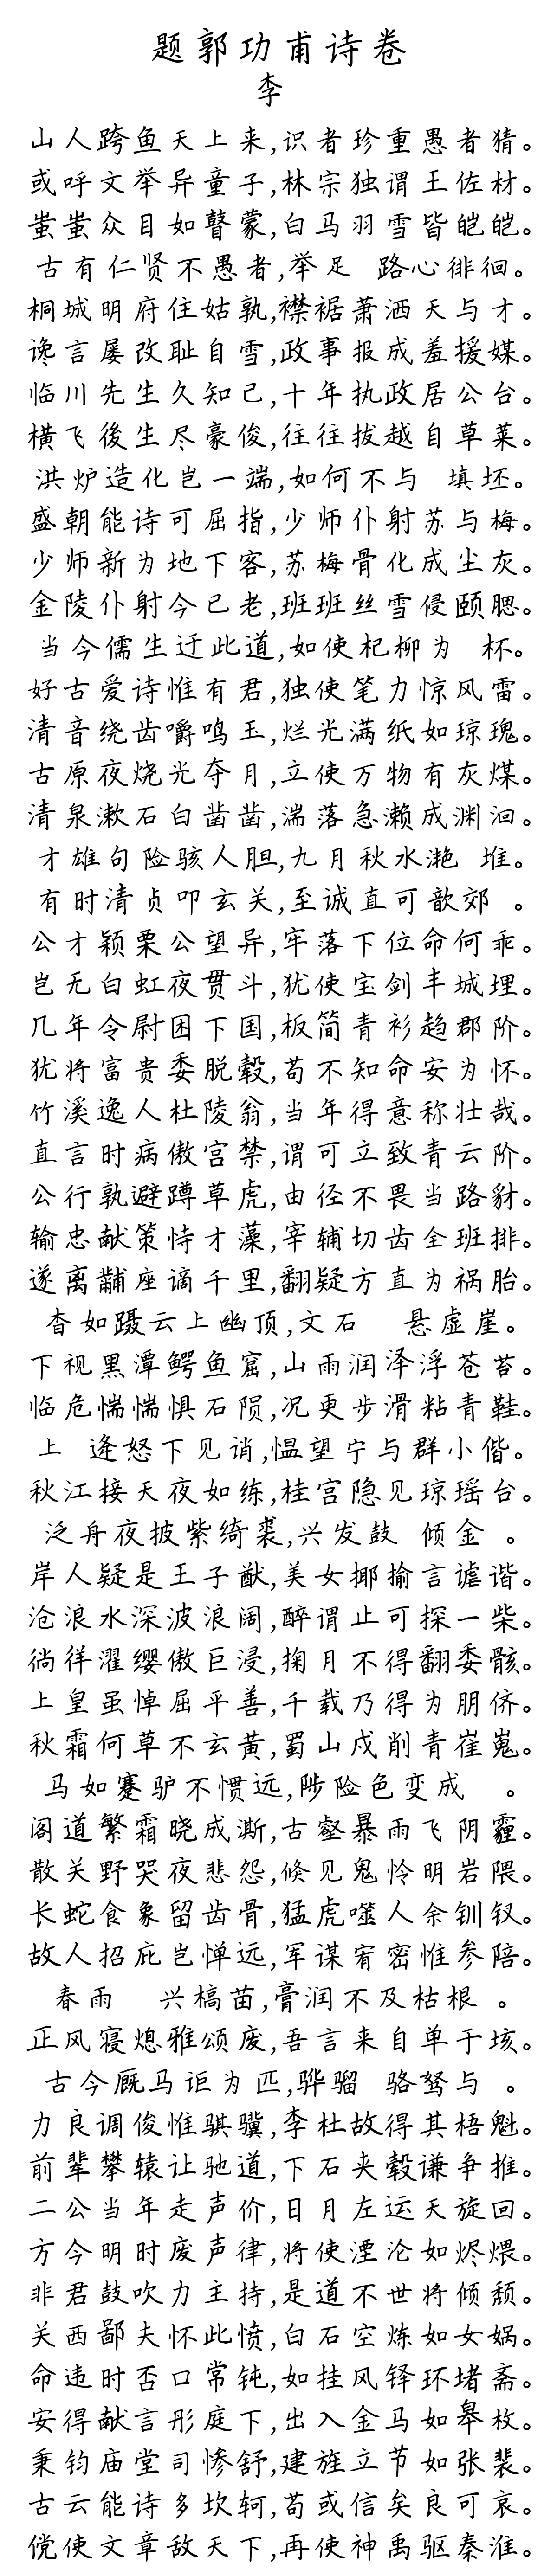 题郭功甫诗卷
李
山人跨鱼天上来,识者珍重愚者猜。
或呼文举异童子,林宗独谓王佐材。
蚩蚩众目如瞽蒙,白马羽雪皆皑皑。
古有仁贤不愚者,举足 路心徘徊。
桐城明府住姑孰,襟裾萧洒天与才。
谗言屡改耻自雪,政事报成羞援媒。
临川先生久知己,十年执政居公台。
横飞後生尽豪俊,往往拔越自草莱。
洪炉造化岂一端,如何不与 填坯。
盛朝能诗可屈指,少师仆射苏与梅。
少师新为地下客,苏梅骨化成尘灰。
金陵仆射今已老,班班丝雪侵颐腮。
当今儒生迂此道,如使杞柳为 杯。
好古爱诗惟有君,独使笔力惊风雷。
清音绕齿嚼鸣玉,烂光满纸如琼瑰。
古原夜烧光夺月,立使万物有灰煤。
清泉漱石白凿凿,湍落急濑成渊洄。
才雄句险骇人胆,九月秋水滟 堆。
有时清贞叩玄关,至诚直可歆郊 。
公才颖栗公望异,牢落下位命何乖。
岂无白虹夜贯斗,犹使宝剑丰城埋。
几年令尉困下国,板简青衫趋郡阶。
犹将富贵委脱毂,苟不知命安为怀。
竹溪逸人杜陵翁,当年得意称壮哉。
直言时病傲宫禁,谓可立致青云阶。
公行孰避蹲草虎,由径不畏当路豺。
输忠献策恃才藻,宰辅切齿全班排。
遂离黼座谪千里,翻疑方直为祸胎。
杳如蹑云上幽顶,文石  悬虚崖。
下视黑潭鳄鱼窟,山雨润泽浮苍苔。
临危惴惴惧石陨,况更步滑粘青鞋。
上 逄怒下见诮,愠望宁与群小偕。
秋江接天夜如练,桂宫隐见琼瑶台。
泛舟夜披紫绮裘,兴发鼓 倾金 。
岸人疑是王子猷,美女揶揄言谑谐。
沧浪水深波浪阔,醉谓止可探一柴。
徜徉濯缨傲巨浸,掬月不得翻委骸。
上皇虽悼屈平善,千载乃得为朋侪。
秋霜何草不玄黄,蜀山戍削青崔嵬。
马如蹇驴不惯远,陟险色变成  。
阁道繁霜晓成澌,古壑暴雨飞阴霾。
散关野哭夜悲怨,倏见鬼怜明岩隈。
长蛇食象留齿骨,猛虎噬人余钏钗。
故人招庇岂惮远,军谋宥密惟参陪。
春雨  兴槁苗,膏润不及枯根 。
正风寝熄雅颂废,吾言来自单于垓。
古今厩马讵为匹,骅骝 骆驽与 。
力良调俊惟骐骥,李杜故得其梧魁。
前辈攀辕让驰道,下石夹毂谦争推。
二公当年走声价,日月左运天旋回。
方今明时废声律,将使湮沦如烬煨。
非君鼓吹力主持,是道不世将倾颓。
关西鄙夫怀此愤,白石空炼如女娲。
命违时否口常钝,如挂风铎环堵斋。
安得献言彤庭下,出入金马如皋枚。
秉钧庙堂司惨舒,建旌立节如张裴。
古云能诗多坎轲,苟或信矣良可哀。
傥使文章敌天下,再使神禹驱秦淮。